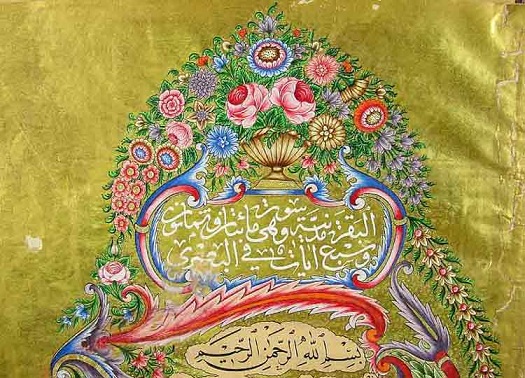 سورة البقرة مدنية وهي مائتان وثمانون
وسبع ايات في البصري
بسم الله الرحمن الرحيم